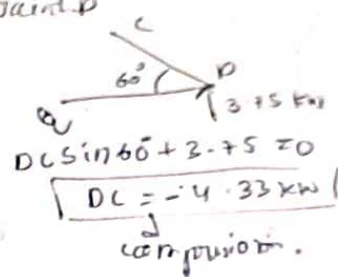 Joint D
C
60°
D
3.75 kN
DC sin 60° + 3.75 = 0
DC = -4.33 kN
compression.